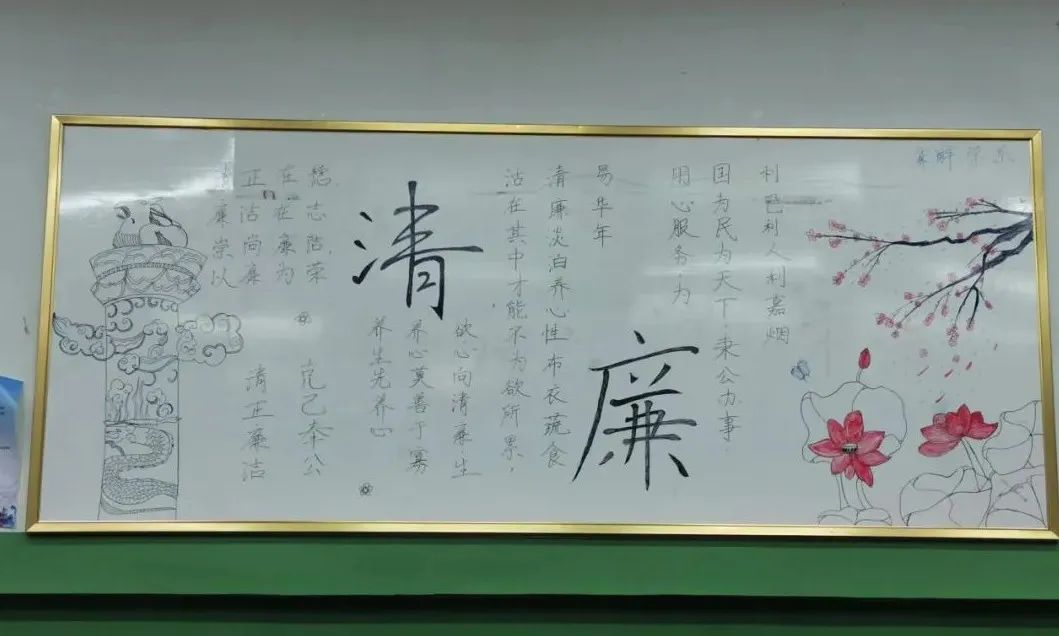 利己利人利嘉烟
国为民为天下.秉公办事.
用心服务,为
易华年
清廉淡泊养心性布衣蔬食
沽在其中才能不为欲所累,
廉
清
欲心向清廉.生
养心莫善于寡
养生先养心
志陷.荣
在在廉为
正沽尚廉
廉崇以
克己奉公
清正廉洁